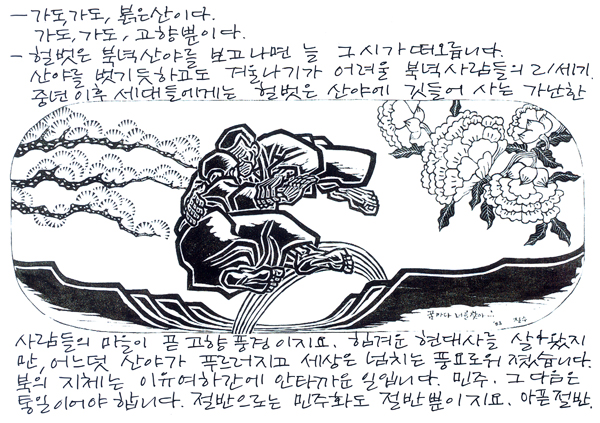 – 가도, 가도, 붉은산이다.
가도, 가도, 고향뿐이다.
– 헐벗은 북녘산야를 보고나면 늘 그 시가 떠오릅니다.
산야를 벗기듯하고도 겨울나기가 어려울 북녘사람들의 21세기.
중년 이후 세대들에게는 헐벗은 산야에 깃들어 사는 가난한
꿈마다 너를 찾아…
'88 철수
사람들의 마을이 곧 고향풍경이지요. 힘겨운 현대사를 살아왔지
만, 어느덧 산야가 푸르러지고 세상은 넘치는 풍요로워졌습니다.
북의 지체는 이유여하간에 안타까운 일입니다. 민주. 그 다음은
통일이어야 합니다. 절반으로는 민주화도 절반뿐이지요. 아픈절반.